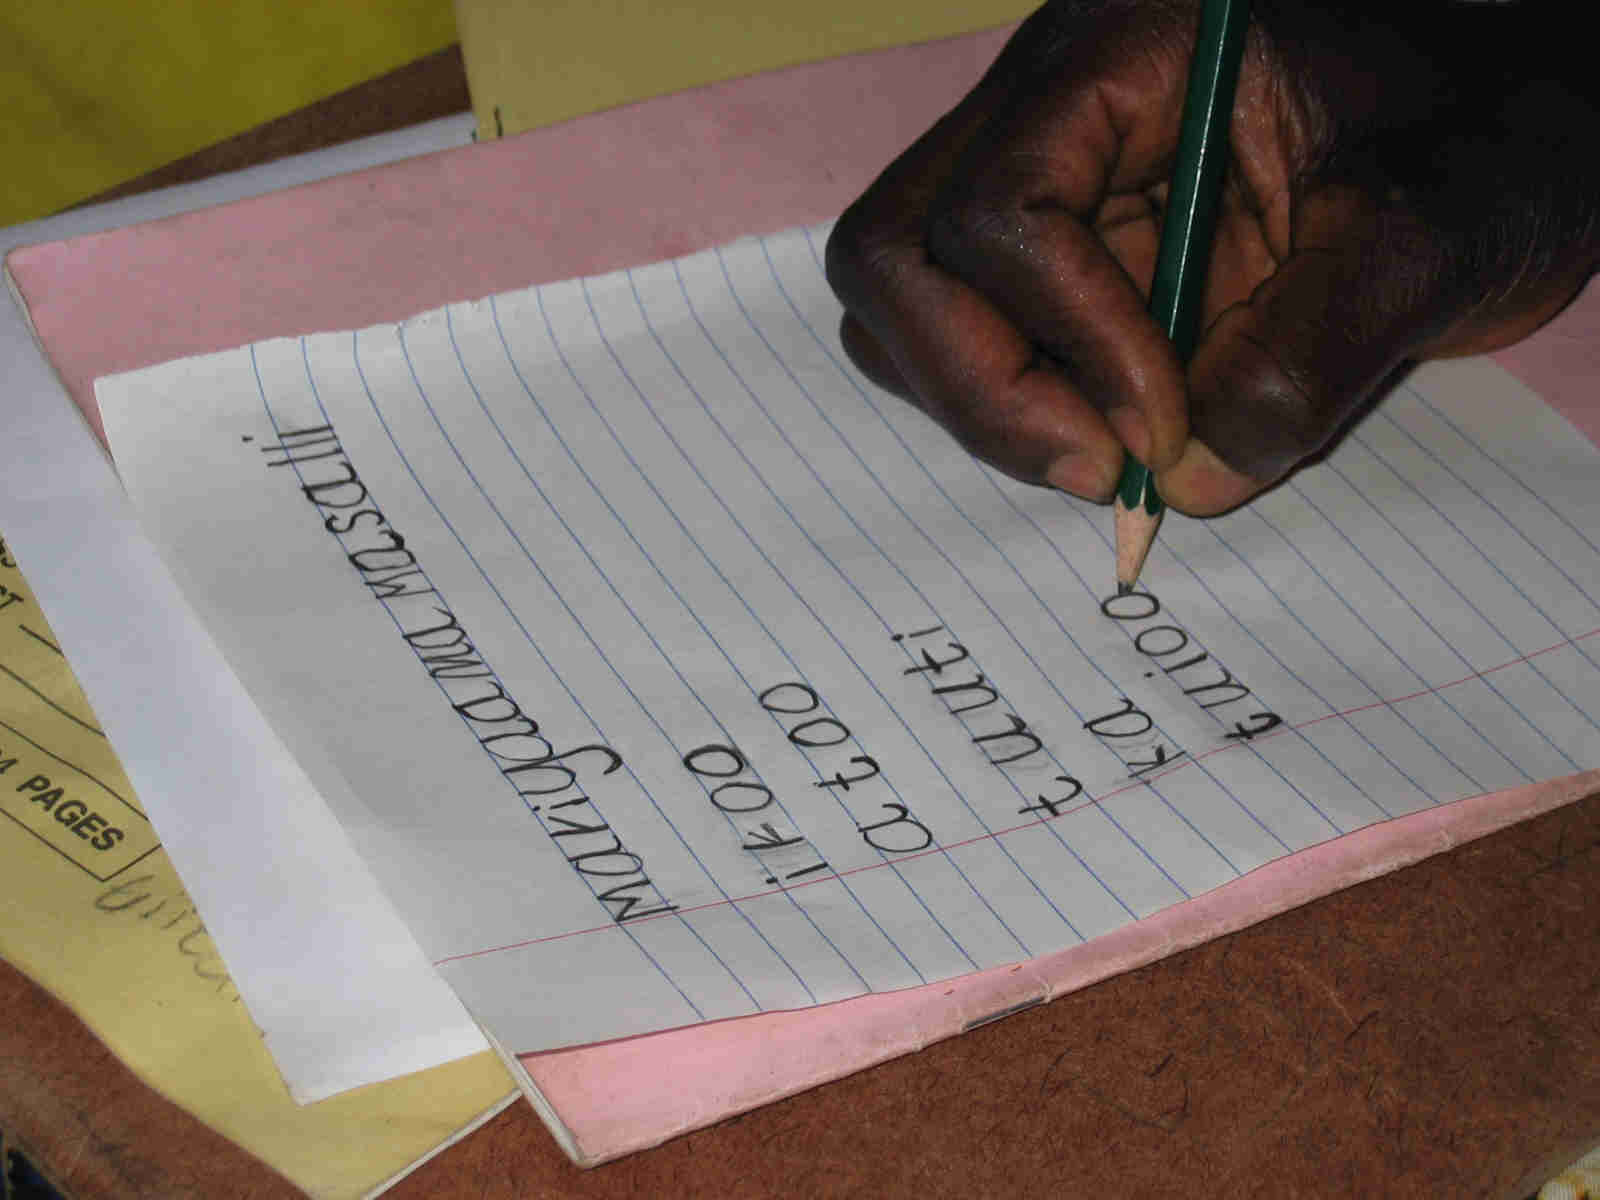 Mariyama Masalli
ikoo
atoo
tuuti
ka
tuioo
PAGES